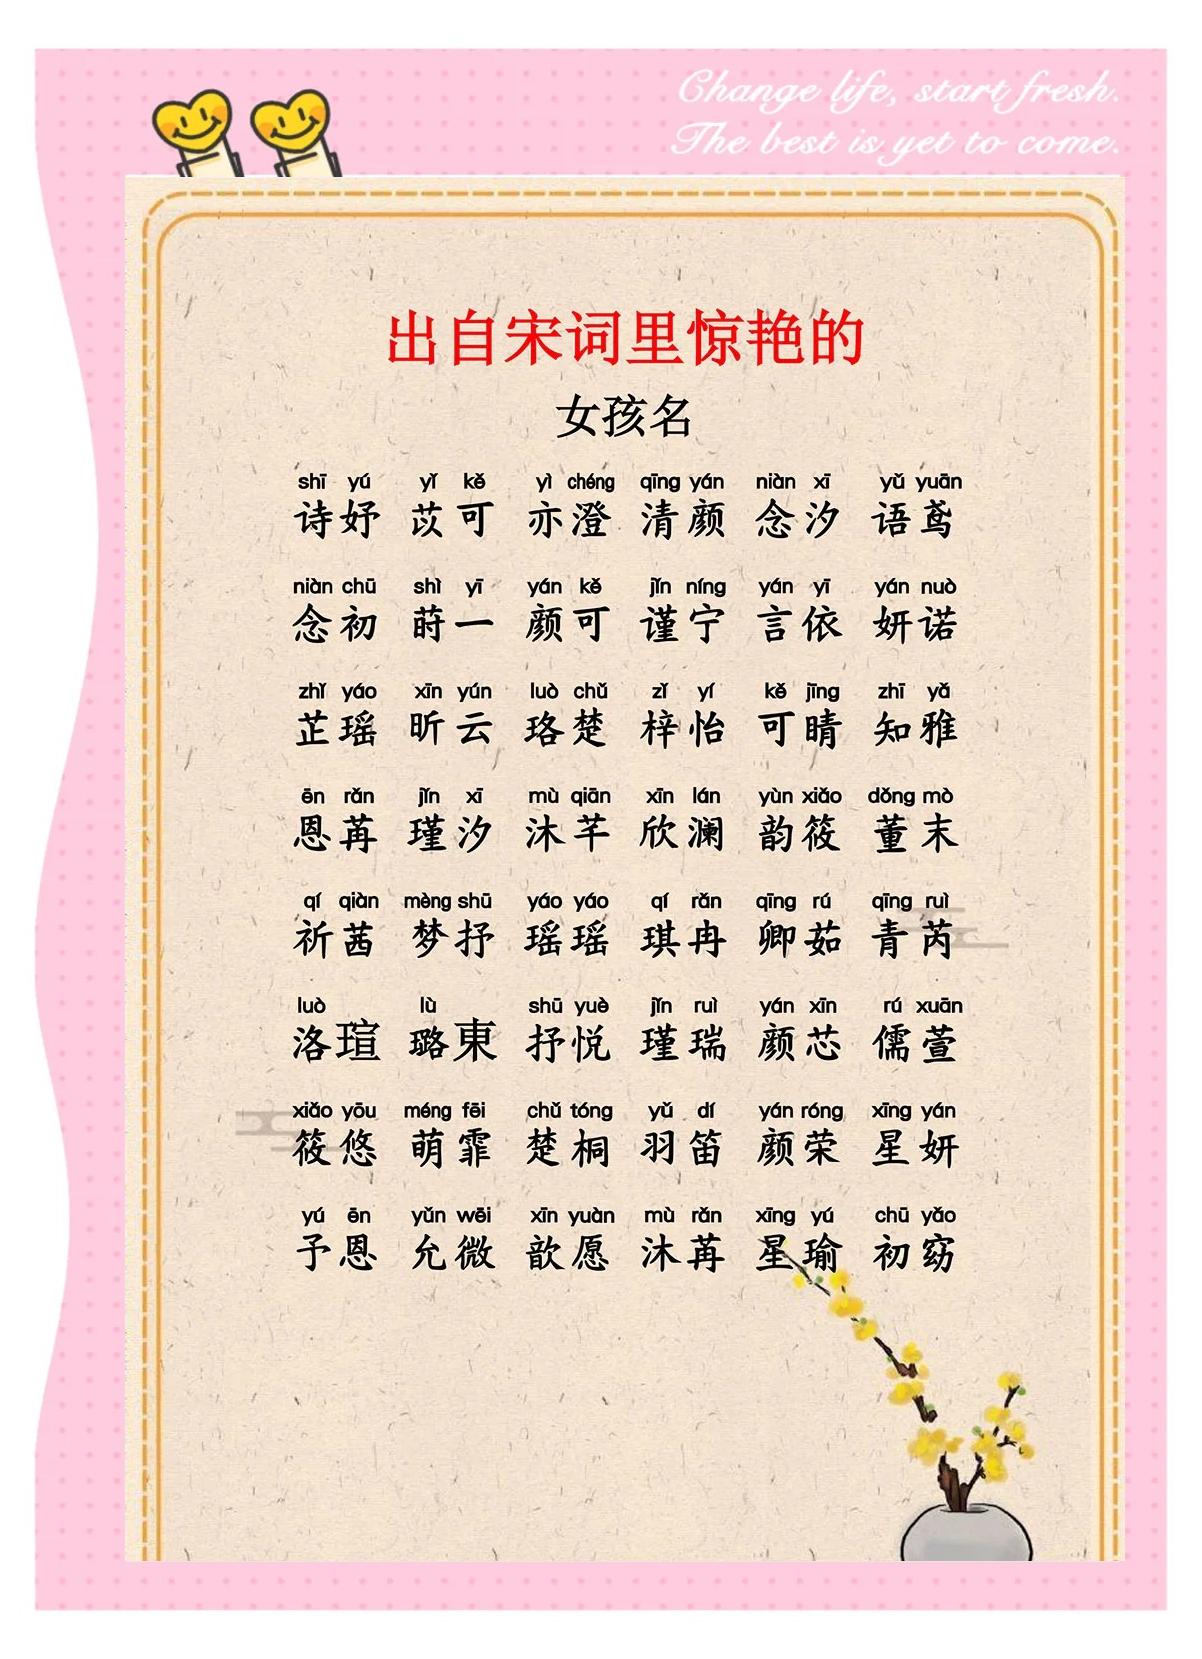 Change life, start fresh.
The best is yet to come.
出自宋词里惊艳的
女孩名
shī yú yǐ kě yì chéng qīng yán niàn xī yǔ yuān
诗妤 苡可 亦澄 清颜 念汐 语鸢
niàn chū shì yī yán kě jǐn níng yán yī yán nuò
念初 莳一 颜可 谨宁 言依 妍诺
zhǐ yáo xīn yún luò chǔ zǐ yí kě jīng zhī yǎ
芷瑶 昕云 珞楚 梓怡 可睛 知雅
ēn rǎn jǐn xī mù qiān xīn lán yùn xiǎo dǒng mò
恩苒 瑾汐 沐芊 欣澜 韵筱 董末
qí qiàn mèng shū yáo yáo qí rǎn qīng rú qīng ruì
祈茜 梦抒 瑶瑶 琪冉 卿茹 青芮
luò lù shū yuè jǐn ruì yán xīn rú xuān
洛瑄 璐東 抒悦 瑾瑞 颜芯 儒萱
xiǎo yōu méng fēi chǔ tóng yǔ dí yán róng xīng yán
筱悠 萌霏 楚桐 羽笛 颜荣 星妍
yú ēn yǔn wēi xīn yuàn mù rǎn xīng yú chū yǎo
予恩 允微 歆愿 沐苒 星瑜 初窈